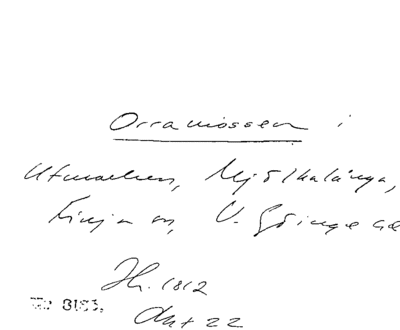 Orramossen i
Utmarken, Mjölkalånga,
Finja sn, V. Göinge hd
Jh. 1812
Akt 22